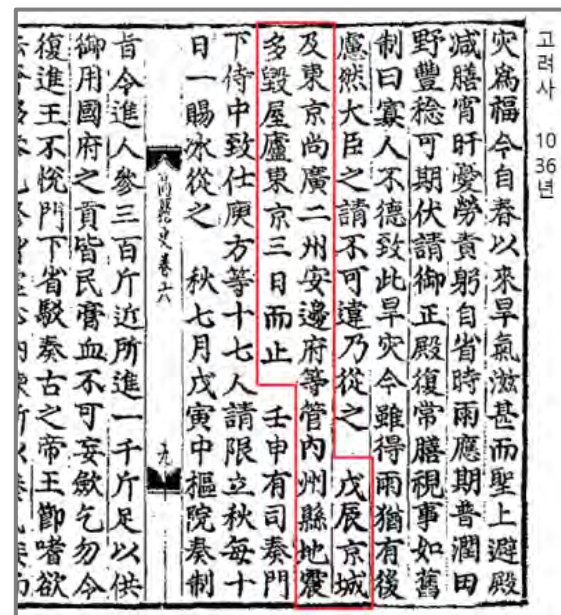 고려사 1036년
灾爲福今自春以來旱氣滋甚而聖上避殿
减膳宵旰憂勞責躬自省時雨應期普潤田
野豐稔可期伏請御正殿復常膳視事如舊
制曰寡人不德致此旱灾今雖得雨猶有後
慮然大臣之請不可違乃從之 戊辰京城
及東京尙廣二州安邊府等管內州縣地震
多毀屋廬東京三日而止 壬申有司奏門
下侍中致仕庾方等十七人請限立秋每十
日一賜氷從之 秋七月戊寅中樞院奏制
高麗史卷六 九
旨令進人參三百斤近所進一千斤足以供
御用國府之貢皆民膏血不可妄斂乞勿令
復進王不悅門下省駁奏古之帝王節嗜欲